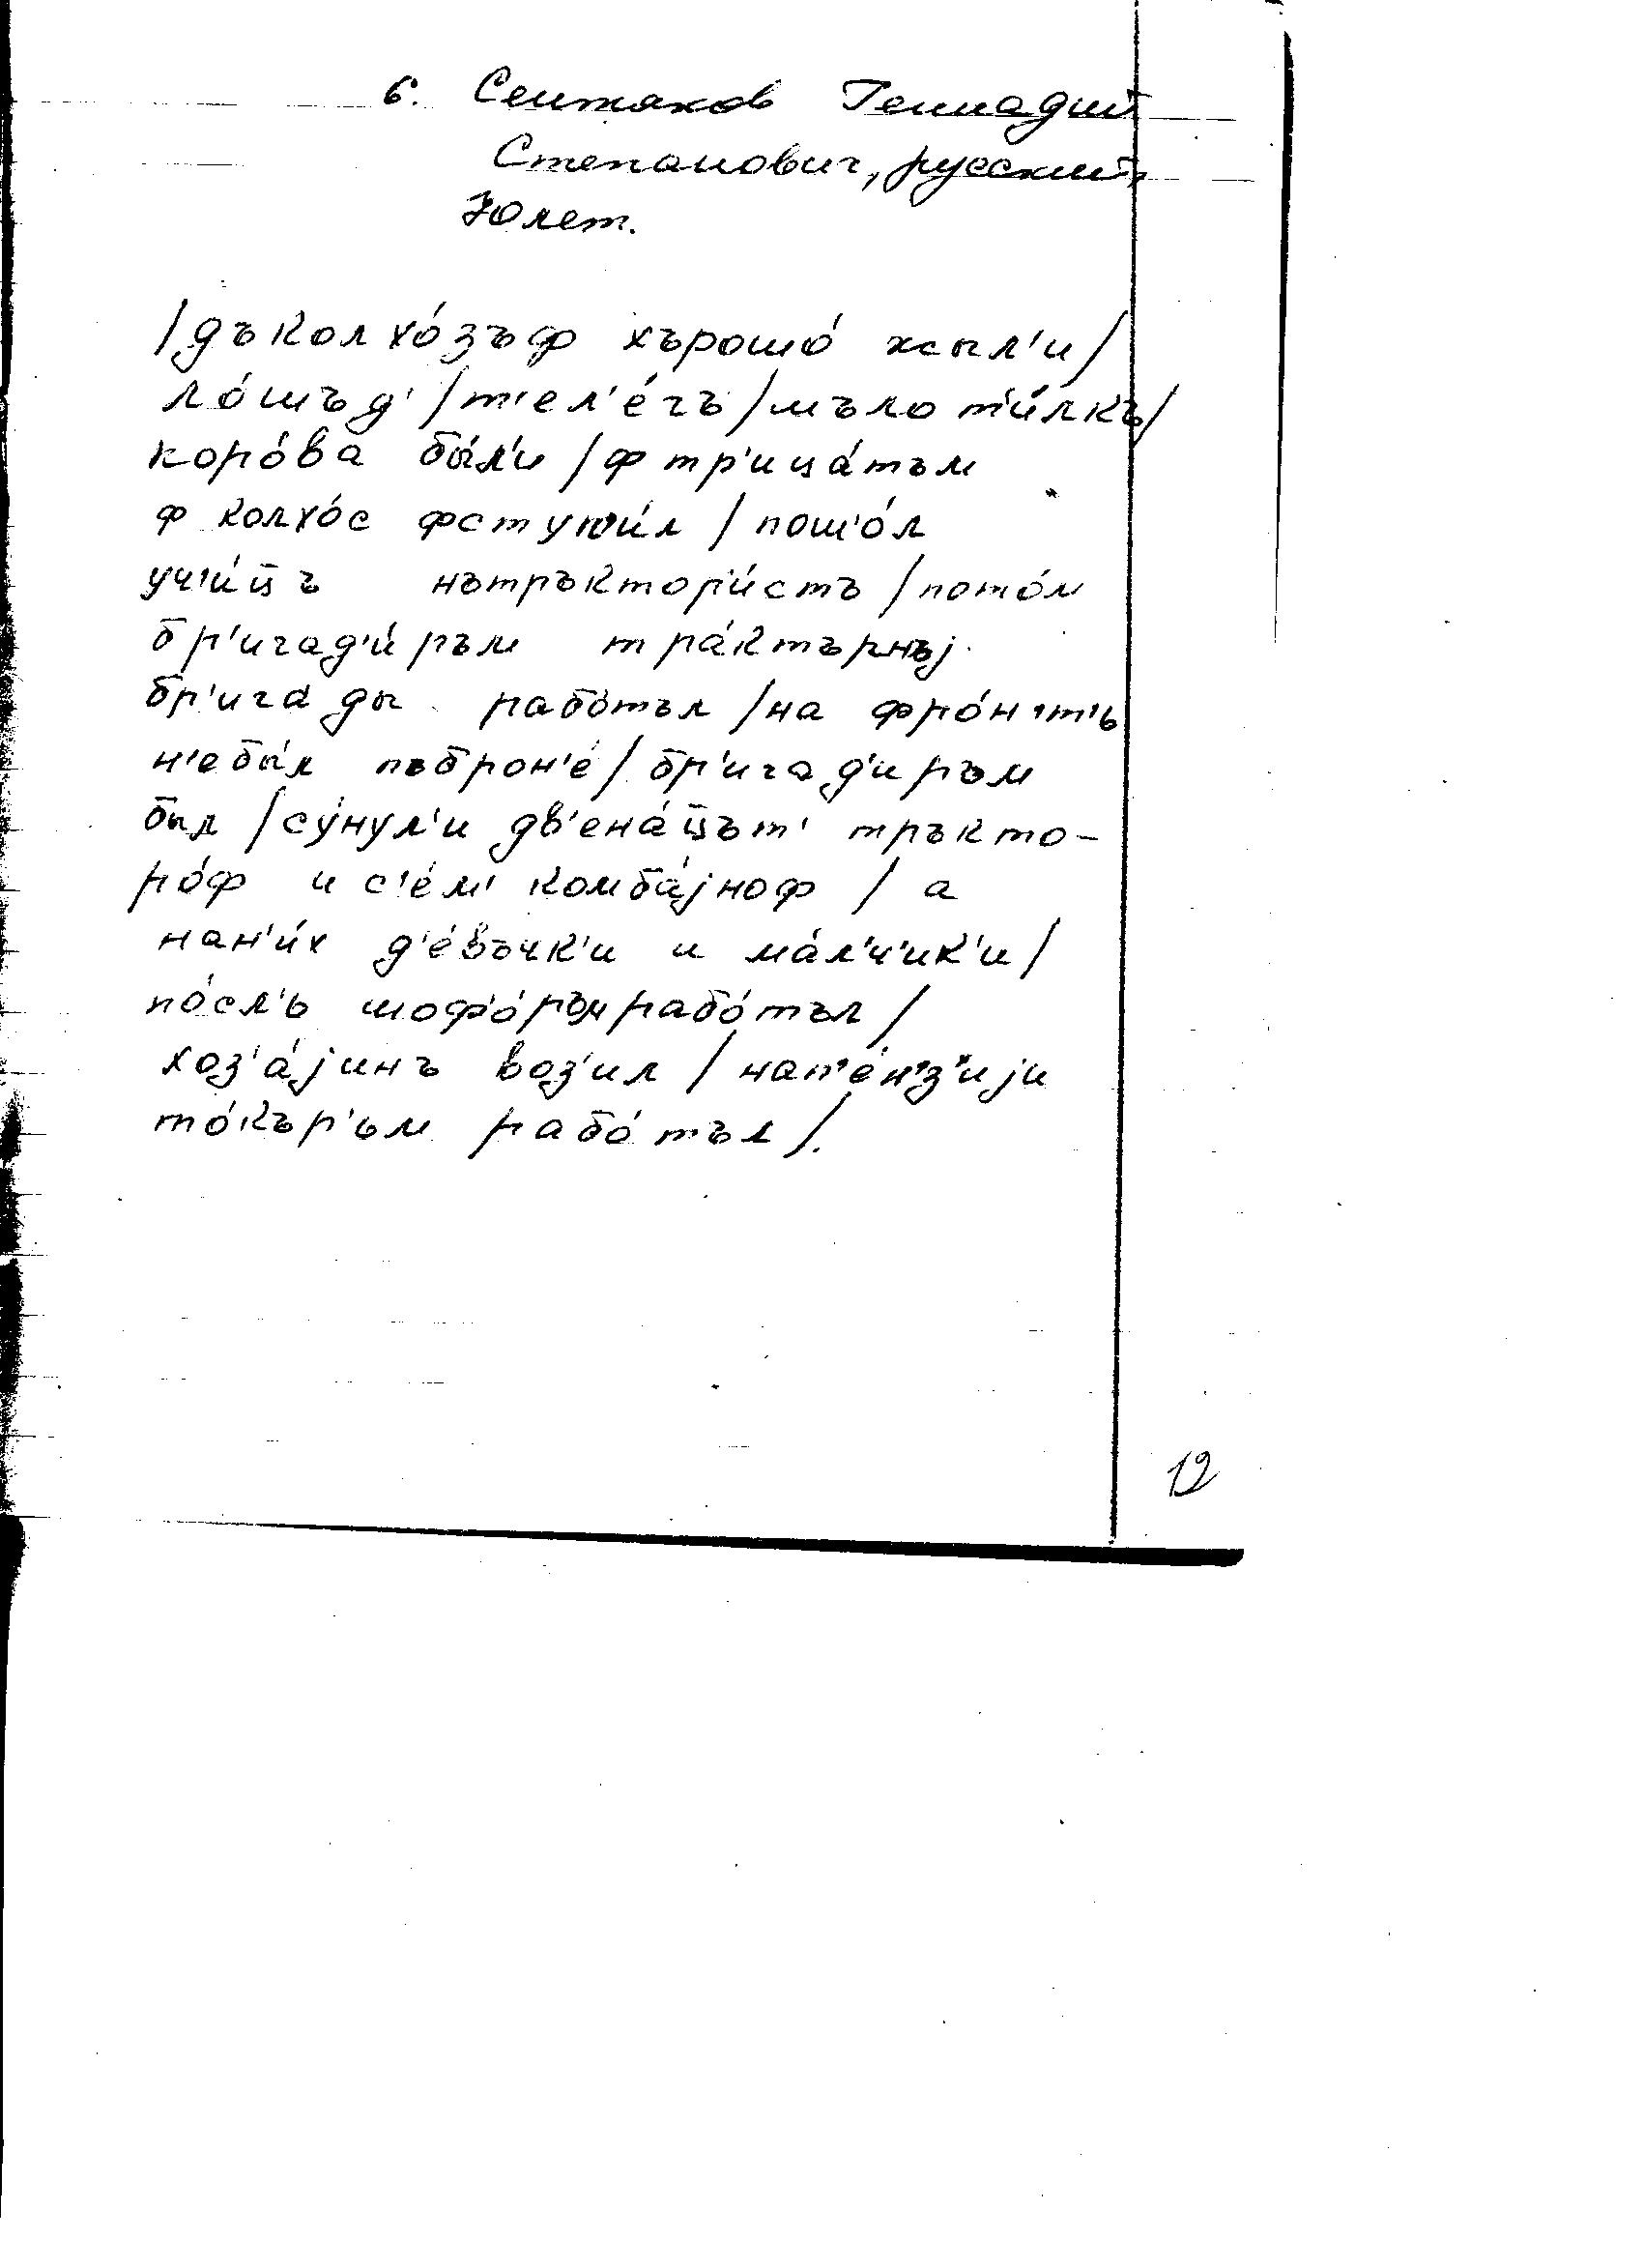 6. Сентяков Геннадий
Степанович, русский,
70 лет.
/дъколхо́зъф хърошо́ жыл'и/
ло́шъд'/т'ел'е́гъ/мълот'и́лкъ/
коро́ва бы́л'и/ф тр'ица́тъм
ф колхо́с фступ'и́л/пошо́л
уч'и́ц̄ъ нътръктор'и́стъ/пото́м
бр'игад'и́ръм тра́ктърнъj
бр'ига́ды рабо́тъл/на фро́н'т'ь
н'ебы́л пъброн'е́/бр'игад'иръм
был/су́нул'и дв'ена́ц̄ът' тръкто-
ро́ф и с'е́м' комба́jноф/а
нан'и́х д'е́въчк'и и ма́л'ч'ик'и/
по́сл'ь шоф'о́ръмрабо́тъл/
хоз'а́jинъ воз'ил/нап'е́н'з'иjи
то́кър'ьм рабо́тъл/.
12